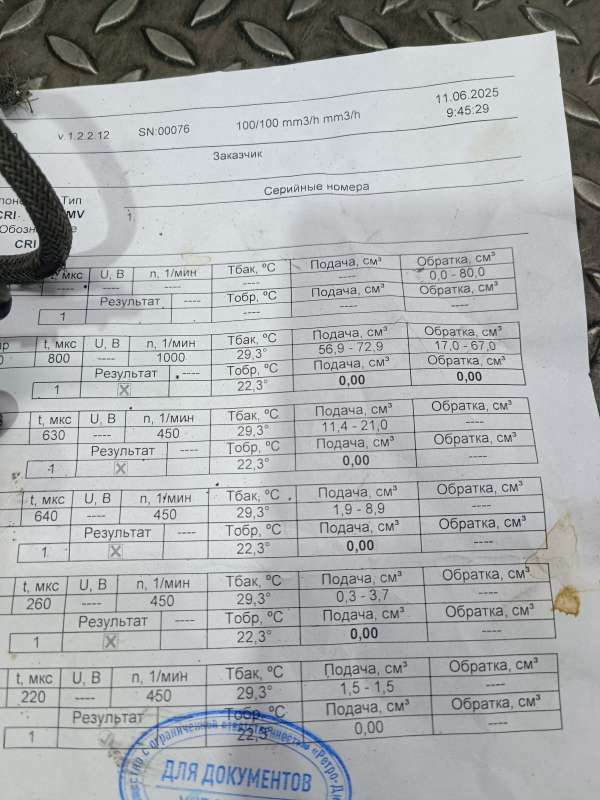 v.1.2.2.12 SN:00076 100/100 mm3/h mm3/h 11.06.2025
9:45:29
Заказчик
Тип Серийные номера
CRI MV 1.
CRI
t, мкс U, В n, 1/мин Тбак, ºС Подача, см³ Обратка, см³
---- ---- ---- ---- ---- 0,0 - 80,0
Результат ---- Тобр, ºС Подача, см³ Обратка, см³
1 ---- ---- ----
t, мкс U, В n, 1/мин Тбак, ºС Подача, см³ Обратка, см³
800 ---- 1000 29,3° 56,9 - 72,9 17,0 - 67,0
Результат ---- Тобр, ºС Подача, см³ Обратка, см³
1 22,3° 0,00 0,00
t, мкс U, В n, 1/мин Тбак, ºС Подача, см³ Обратка, см³
630 ---- 450 29,3° 11,4 - 21,0 ----
Результат ---- Тобр, ºС Подача, см³ Обратка, см³
1 22,3° 0,00 ----
t, мкс U, В n, 1/мин Тбак, ºС Подача, см³ Обратка, см³
640 ---- 450 29,3° 1,9 - 8,9 ----
Результат ---- Тобр, ºС Подача, см³ Обратка, см³
1 22,3° 0,00 ----
t, мкс U, В n, 1/мин Тбак, ºС Подача, см³ Обратка, см³
260 ---- 450 29,3° 0,3 - 3,7 ----
Результат ---- Тобр, ºС Подача, см³ Обратка, см³
1 22,3° 0,00 ----
t, мкс U, В n, 1/мин Тбак, ºС Подача, см³ Обратка, см³
220 ---- 450 29,3° 1,5 - 1,5 ----
Результат ---- Тобр, ºС Подача, см³ Обратка, см³
1 22,3° 0,00 ----
с ограниченной ответственностью «Ретро-
ДЛЯ ДОКУМЕНТОВ